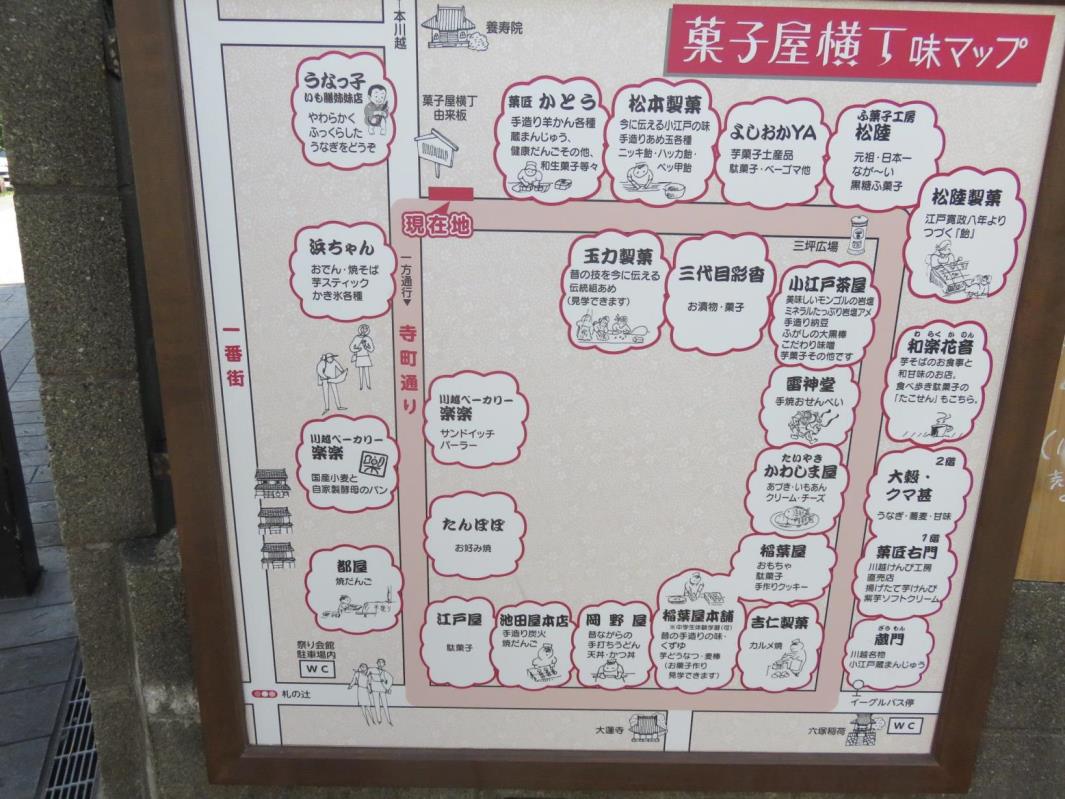 菓子屋横丁味マップ
本川越
養寿院
うなっ子
いも膳姉妹店
やわらかく
ふっくらした
うなぎをどうぞ
菓子屋横丁
由来板
菓匠 かとう
手造り羊かん各種
蔵まんじゅう、
健康だんごその他、
和生菓子等々
松本製菓
今に伝える小江戸の味
手造りあめ玉各種
ニッキ飴・ハッカ飴・
ベッ甲飴
よしおかYA
芋菓子土産品
駄菓子・ベーゴマ他
ふ菓子工房
松陸
元祖・日本一
なが〜い
黒糖ふ菓子
松陸製菓
江戸寛政八年より
つづく「飴」
現在地
三坪広場
浜ちゃん
おでん・焼そば
芋スティック
かき氷各種
一方通行▼
寺町通り
一番街
玉力製菓
昔の技を今に伝える
伝統組あめ
(見学できます)
三代目彩香
お漬物・菓子
小江戸茶屋
美味しいモンゴルの岩塩
ミネラルたっぷり岩塩アメ
手造り納豆
ふがしの大黒棒
こだわり味噌
芋菓子その他です
わらくかのん
和楽花音
芋そばのお食事と
和甘味のお店。
食べ歩き駄菓子の
「たこせん」もこちら。
雷神堂
手焼おせんべい
川越ベーカリー
楽楽
サンドイッチ
パーラー
川越ベーカリー
楽楽
楽
国産小麦と
自家製酵母のパン
たいやき
かわしま屋
あづき・いもあん
クリーム・チーズ
2階
大穀・
クマ甚
うなぎ・蕎麦・甘味
たんぽぽ
お好み焼
稲葉屋
おもちゃ
駄菓子
手作りクッキー
1階
菓匠右門
川越けんぴ工房
直売店
揚げたて芋けんぴ
紫芋ソフトクリーム
都屋
焼だんご
江戸屋
駄菓子
池田屋本店
手造り炭火
焼だんご
岡野屋
昔ながらの
手打ちうどん
天丼・かつ丼
稲葉屋本舗
※中学生体験学習(可)
昔の手造りの味・
くずゆ
芋どうなつ・麦棒
(お菓子作り
見学できます)
吉仁製菓
カルメ焼
ざらもん
蔵門
川越名物
小江戸蔵まんじゅう
祭り会館
駐車場内
WC
札の辻
イーグルバス停
大蓮寺
六塚稲荷
WC